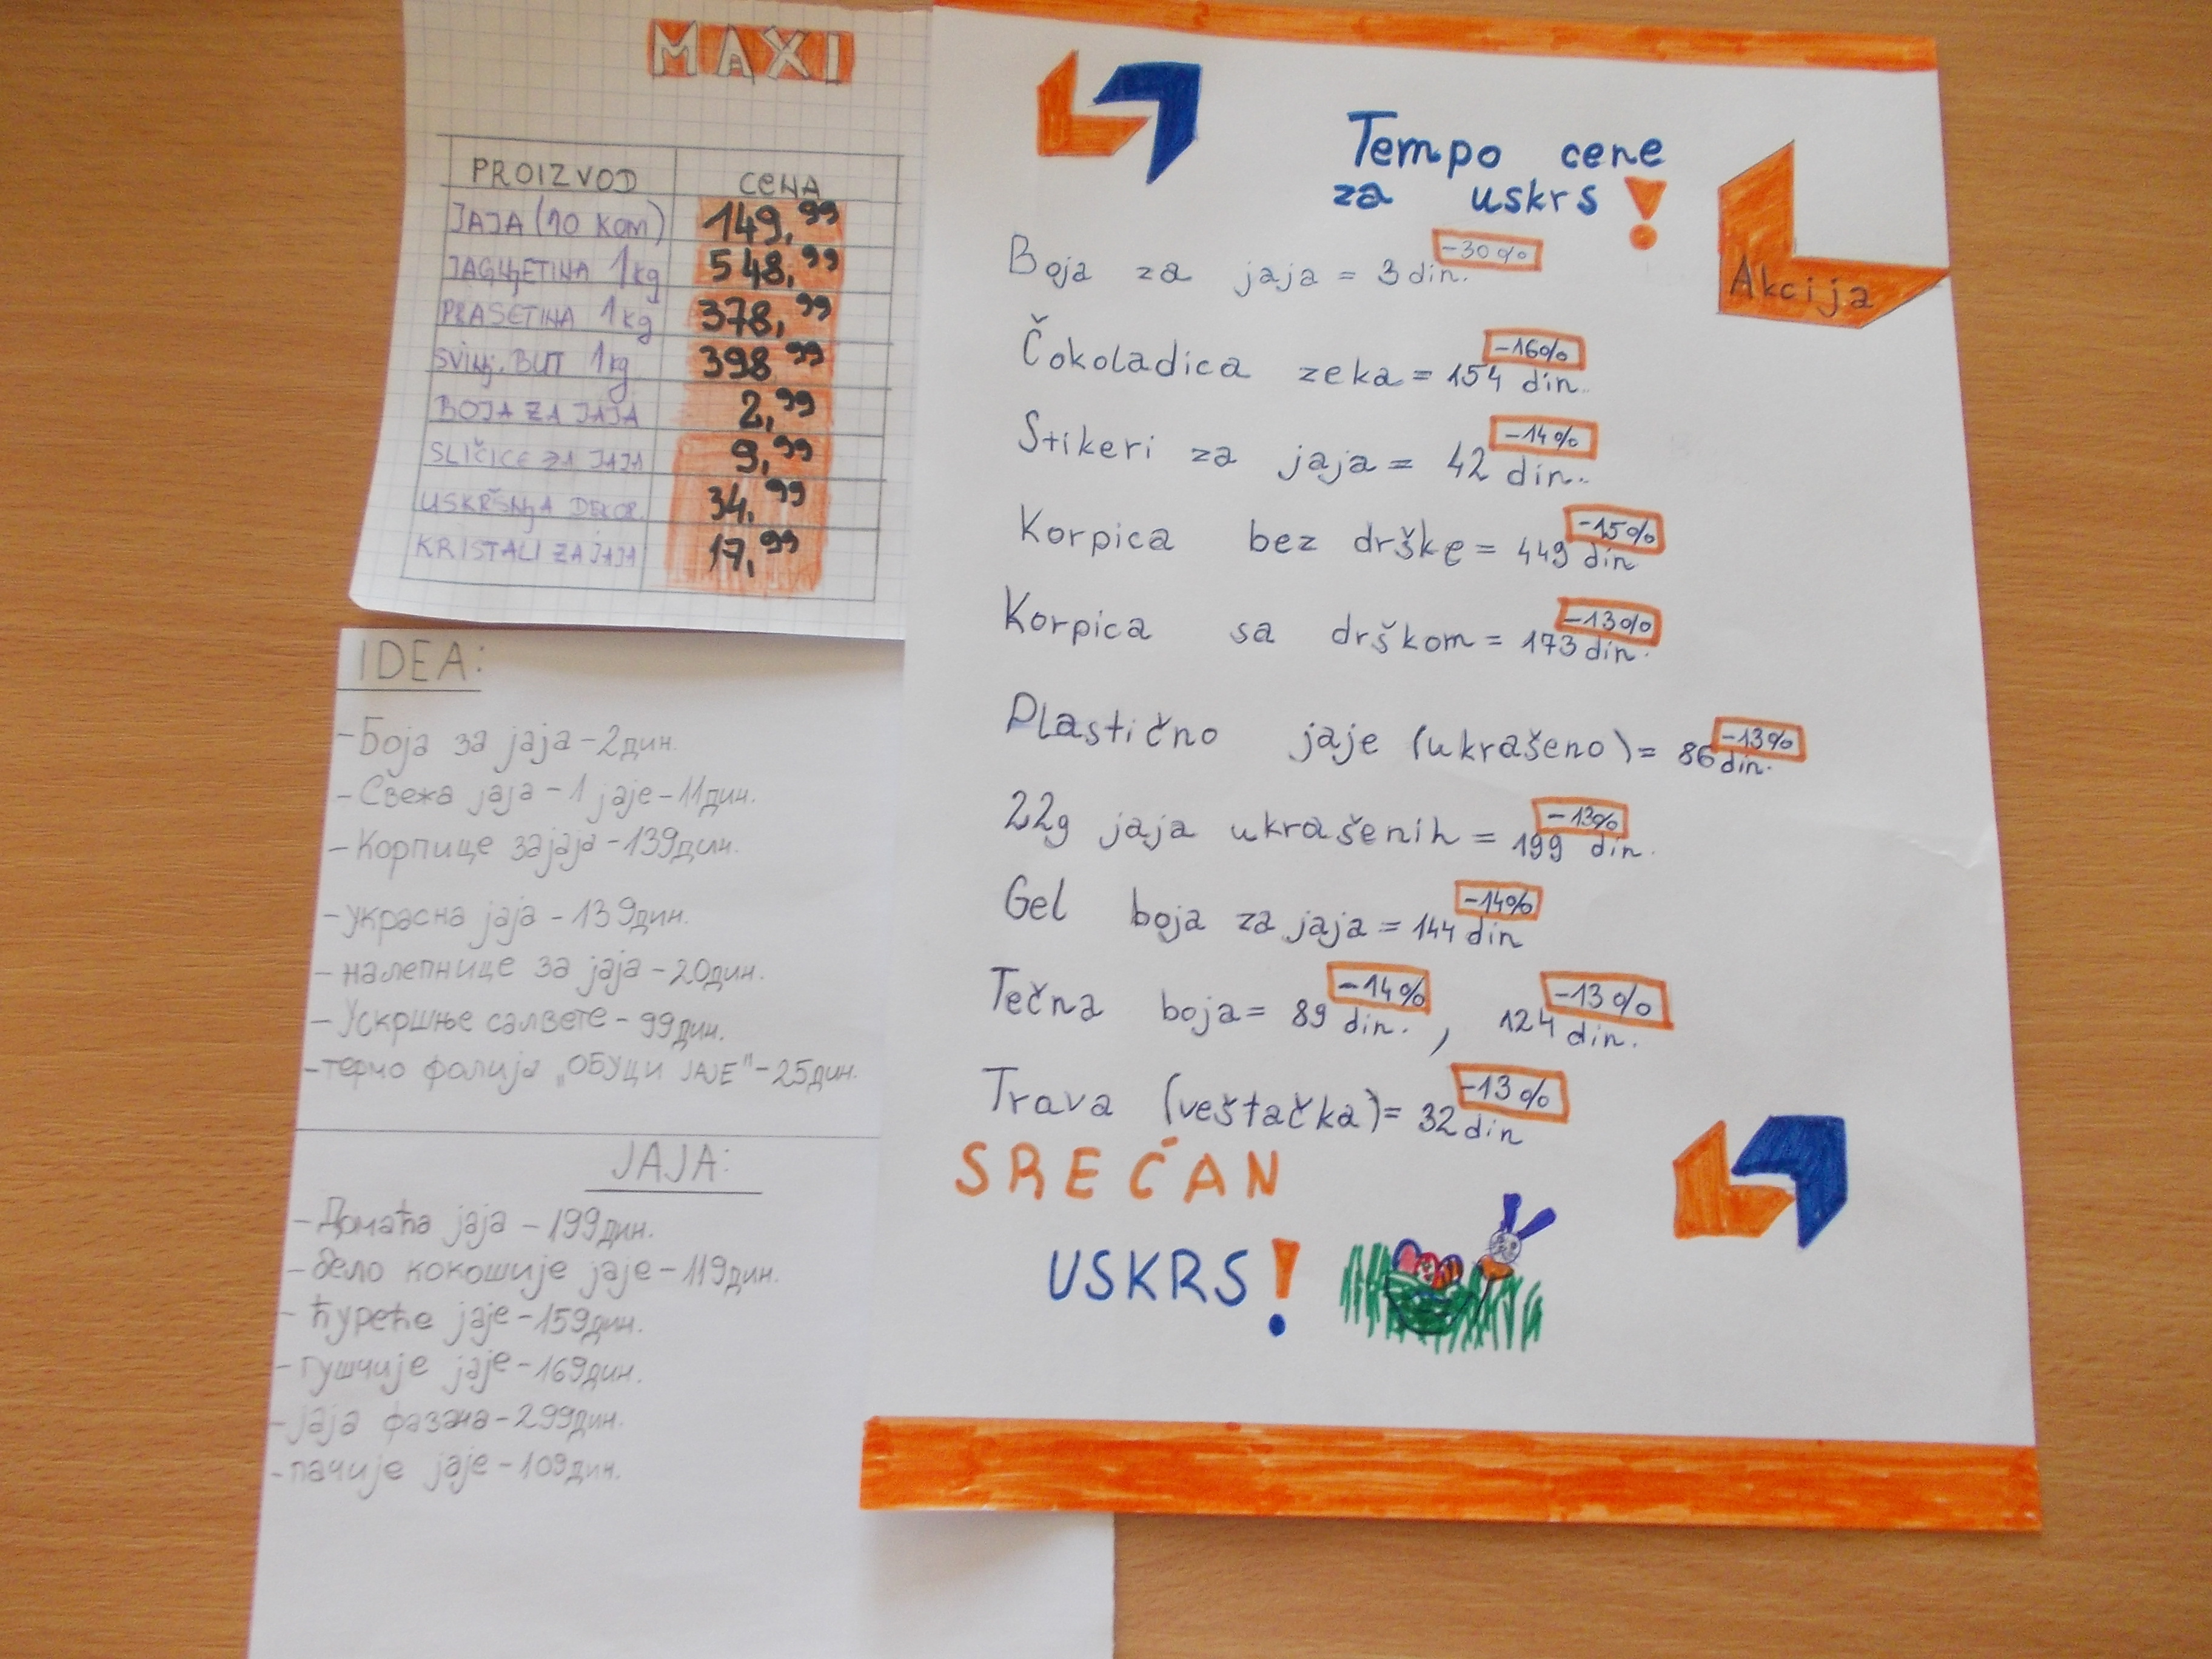 MAXI
PROIZVOD CENA
JAJA (10 KOM) 149,99
JAGNJETINA 1kg 548,99
PRASETINA 1kg 378,99
SVINJ. BUT 1kg 398 99
BOJA ZA JAJA 2,99
SLIČICE ZA JAJA 9,99
USKRŠNJA DEKOR. 34,99
KRISTALI ZA JAJA 17,99
IDEA:
-Боја за јаја-2дин.
-Свежа јаја-1 јаје-11дин.
-Корпице за јаја-139дин.
-украсна јаја-139дин.
-налепнице за јаја-20дин.
-Ускршње салвете-99дин.
-термо фолија „ОБУЦИ ЈАЈЕ"-25дин.
JAJA:
-Домаћа јаја-199дин.
-бело кокошије јаје-119дин.
-ћуреће јаје-159дин.
-гушчије јаје-169дин.
-јаја фазана-299дин.
-пачије јаје-109дин.
Tempo cene
za uskrs!
Akcija
Boja za jaja = 3 din. -30%
Čokoladica zeka = 154 din. -16%
Stikeri za jaja = 42 din. -14%
Korpica bez drške = 449 din -15%
Korpica sa drškom = 173 din. -13%
Plastično jaje (ukrašeno) = 86 din. -13%
22g jaja ukrašenih = 199 din. -13%
Gel boja za jaja = 144 din -14%
Tečna boja = 89 din. -14%, 124 din. -13%
Trava (veštačka) = 32 din -13%
SREĆAN
USKRS!